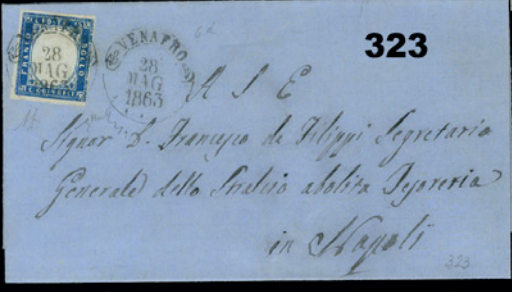 323
FRANCO BOLLO
28
MAG
1863
VENAFRO
28
MAG
1863
A S E
Signor D. Francesco de Filippi Segretario
Generale dello Stralcio abolita Tesoreria
in Napoli
323